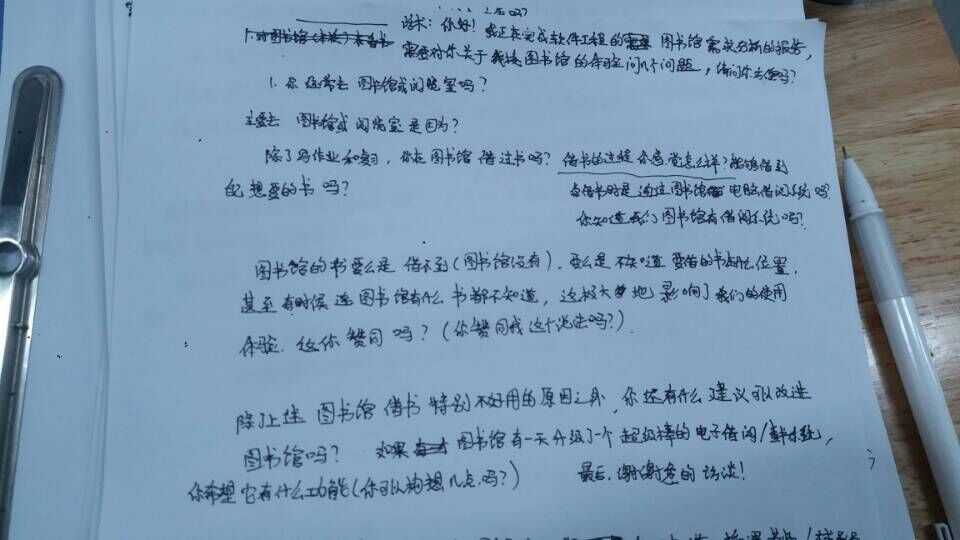 话术：你好！我正在完成软件工程的图书馆需求分析的报告，
需要对你关于我校图书馆的体验问几个问题，请问你方便吗？
1. 你经常去图书馆或阅览室吗？
主要去图书馆或阅览室是因为？
除了写作业和复习，你在图书馆借过书吗？借书的过程你感觉怎么样？能够借到
你想要的书吗？
去借书时是通过图书馆电脑借阅系统吗？
你知道我们图书馆有借阅系统吗？
图书馆的书要么是借不到（图书馆没有），要么是不知道要借的书在什么位置，
甚至有时候连图书馆有什么书都不知道，这极大地影响了我们的使用
体验，这你赞同吗？（你赞同我这个说法吗？）
除上述图书馆借书特别不好用的原因之外，你还有什么建议可以改进
图书馆吗？如果图书馆有一天升级了一个超级棒的电子借阅/系统，
你希望它有什么功能（你可以构想几点吗？）最后，谢谢您的访谈！